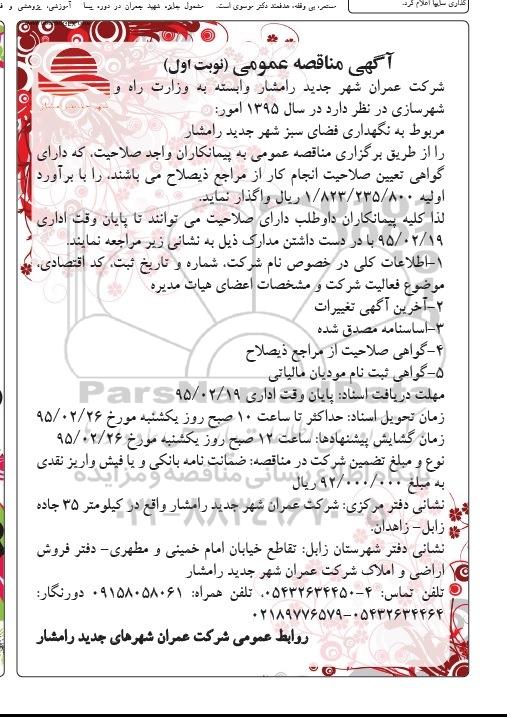 گذاری سایپا اعلام کرد.
مستمر، بی وقفه، هدفمند دکتر موسوی است.
مشمول جایزه شهید چمران در دوره پسا
آموزشی، پژوهشی و
آگهی مناقصه عمومی (نوبت اول)
شرکت عمران شهر جدید رامشار وابسته به وزارت راه و
شهرسازی در نظر دارد در سال ۱۳۹۵ امور:
مربوط به نگهداری فضای سبز شهر جدید رامشار
را از طریق برگزاری مناقصه عمومی به پیمانکاران واجد صلاحیت، که دارای
گواهی تعیین صلاحیت انجام کار از مراجع ذیصلاح می باشند، را با برآورد
اولیه ۱/۸۲۳/۲۳۵/۸۰۰ ریال واگذار نماید.
لذا کلیه پیمانکاران داوطلب دارای صلاحیت می توانند تا پایان وقت اداری
۹۵/۰۲/۱۹ با در دست داشتن مدارک ذیل به نشانی زیر مراجعه نمایند.
۱-اطلاعات کلی در خصوص نام شرکت، شماره و تاریخ ثبت، کد اقتصادی،
موضوع فعالیت شرکت و مشخصات اعضای هیات مدیره
۲-آخرین آگهی تغییرات
۳-اساسنامه مصدق شده
۴-گواهی صلاحیت از مراجع ذیصلاح
۵-گواهی ثبت نام مودیان مالیاتی
مهلت دریافت اسناد: پایان وقت اداری ۹۵/۰۲/۱۹
زمان تحویل اسناد: حداکثر تا ساعت ۱۰ صبح روز یکشنبه مورخ ۹۵/۰۲/۲۶
زمان گشایش پیشنهادها: ساعت ۱۲ صبح روز یکشنبه مورخ ۹۵/۰۲/۲۶
نوع و مبلغ تضمین شرکت در مناقصه: ضمانت نامه بانکی و یا فیش واریز نقدی
به مبلغ ۹۲/۰۰۰/۰۰۰ ریال
نشانی دفتر مرکزی: شرکت عمران شهر جدید رامشار واقع در کیلومتر ۳۵ جاده
زابل- زاهدان.
نشانی دفتر شهرستان زابل: تقاطع خیابان امام خمینی و مطهری- دفتر فروش
اراضی و املاک شرکت عمران شهر جدید رامشار
تلفن تماس: ۴-۰۵۴۳۲۶۳۴۴۵۰، تلفن همراه: ۰۹۱۵۸۰۵۸۰۶۱ دورنگار:
۰۵۴۳۲۶۳۴۴۶۴-۰۲۱۸۹۷۷۶۵۷۹
روابط عمومی شرکت عمران شهرهای جدید رامشار